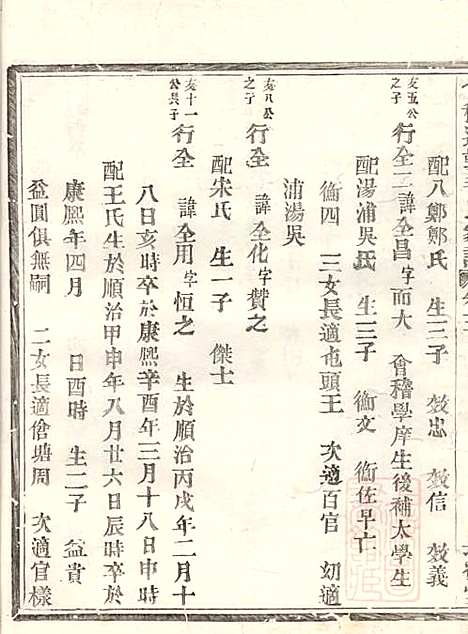 配八鄭鄭氏 生三子 㪍忠 㪍信 㪍義
亥五公之子 行全二 諱全昌 字而大 會稽學庠生後補太學生
配湯浦吳氏 生三子 衡文 衡佐早亡
衡四 三女長適也頭王 次適百官 幼適
浦湯吳
亥八公之子 行全 諱全化 字贊之
配宋氏 生一子 傑士
亥十一公長子 行全 諱全用 字恒之 生於順治丙戌年二月十
八日亥時卒於康熙辛酉年三月十八日申時
配王氏生於順治甲申年八月廿六日辰時卒於
康熙 年四月 日酉時 生二子 益貴
益圓俱無嗣 二女長適傖塘周 次適官樣